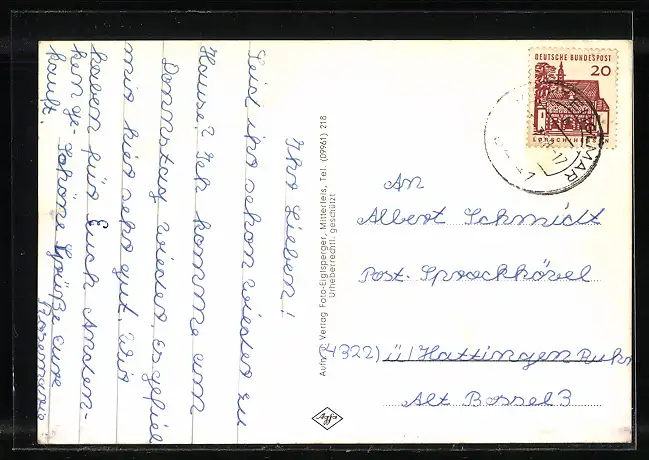 Ihr Lieben!
Seid ihr schon wieder zu
Hause? Ich komme am
Donnstag wieder, es gefiel
mir hier sehr gut. Wir
haben für Euch Anden-
ken ge-
kauft.
Schöne Grüße eure
Rosemarie
Aufn. u. Verlag Foto-Eiglsperger, Mitterfels, Tel. (09961) 218
Urheberrechtl. geschützt
DEUTSCHE BUNDESPOST
20
LORSCH/HESSEN
An
Albert Schmidt
Post. Sprockhövel
(4322) ü/Hattingen Ruhr
Alt Bossel 3